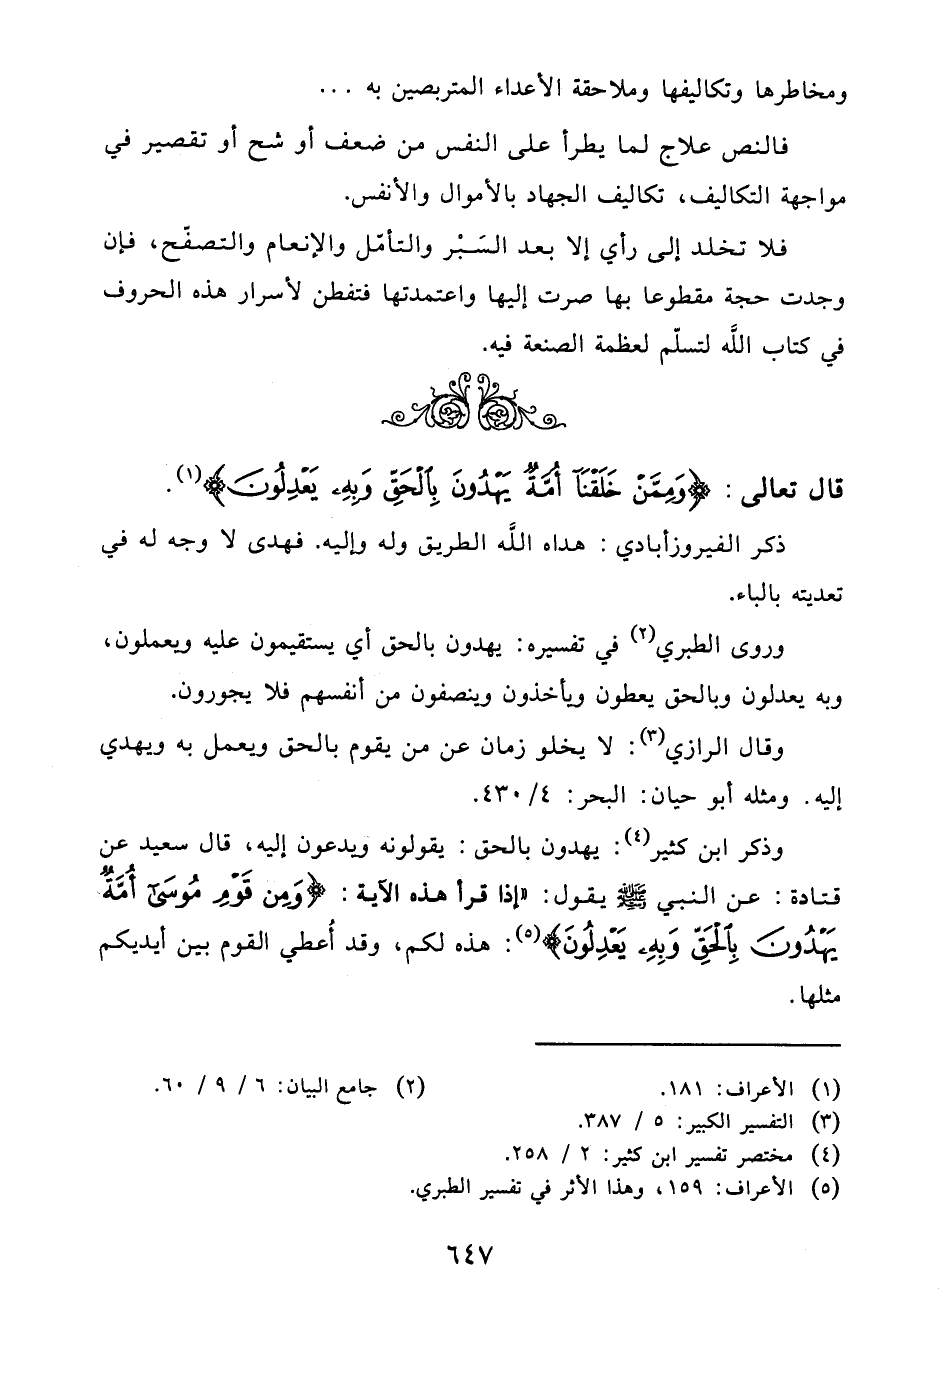 ومخاطرها وتكاليفها وملاحقة الأعداء المتربصين به ...
فالنص علاج لما يطرأ على النفس من ضعف أو شح أو تقصير في
مواجهة التكاليف، تكاليف الجهاد بالأموال والأنفس.
فلا تخلد إلى رأي إلا بعد السَبْر والتأمّل والإنعام والتصفّح، فإن
وجدت حجة مقطوعا بها صرت إليها واعتمدتها فتفطن لأسرار هذه الحروف
في كتاب اللَّه لتسلّم لعظمة الصنعة فيه.
قال تعالى : ﴿وَمِمَّنْ خَلَقْنَآ أُمَّةٌ يَهْدُونَ بِٱلْحَقِّ وَبِهِۦ يَعْدِلُونَ﴾(١).
ذكر الفيروزأبادي : هداه اللَّه الطريق وله وإليه. فهدى لا وجه له في
تعديته بالباء.
وروى الطبري(٢) في تفسيره: يهدون بالحق أي يستقيمون عليه ويعملون،
وبه يعدلون وبالحق يعطون ويأخذون وينصفون من أنفسهم فلا يجورون.
وقال الرازي(٣): لا يخلو زمان عن من يقوم بالحق ويعمل به ويهدي
إليه. ومثله أبو حيان: البحر: ٤/ ٤٣٠.
وذكر ابن كثير(٤): يهدون بالحق : يقولونه ويدعون إليه، قال سعيد عن
قتادة : عن النبي ﷺ يقول: «إذا قرأ هذه الآية : ﴿وَمِن قَوْمِ مُوسَىٰٓ أُمَّةٌ
يَهْدُونَ بِٱلْحَقِّ وَبِهِۦ يَعْدِلُونَ﴾(٥): هذه لكم، وقد أُعطي القوم بين أيديكم
مثلها.
(١) الأعراف: ١٨١. (٢) جامع البيان: ٦ / ٩ / ٦٠.
(٣) التفسير الكبير: ٥ / ٣٨٧.
(٤) مختصر تفسير ابن كثير: ٢ / ٢٥٨.
(٥) الأعراف: ١٥٩، وهذا الأثر في تفسير الطبري.
٦٤٧